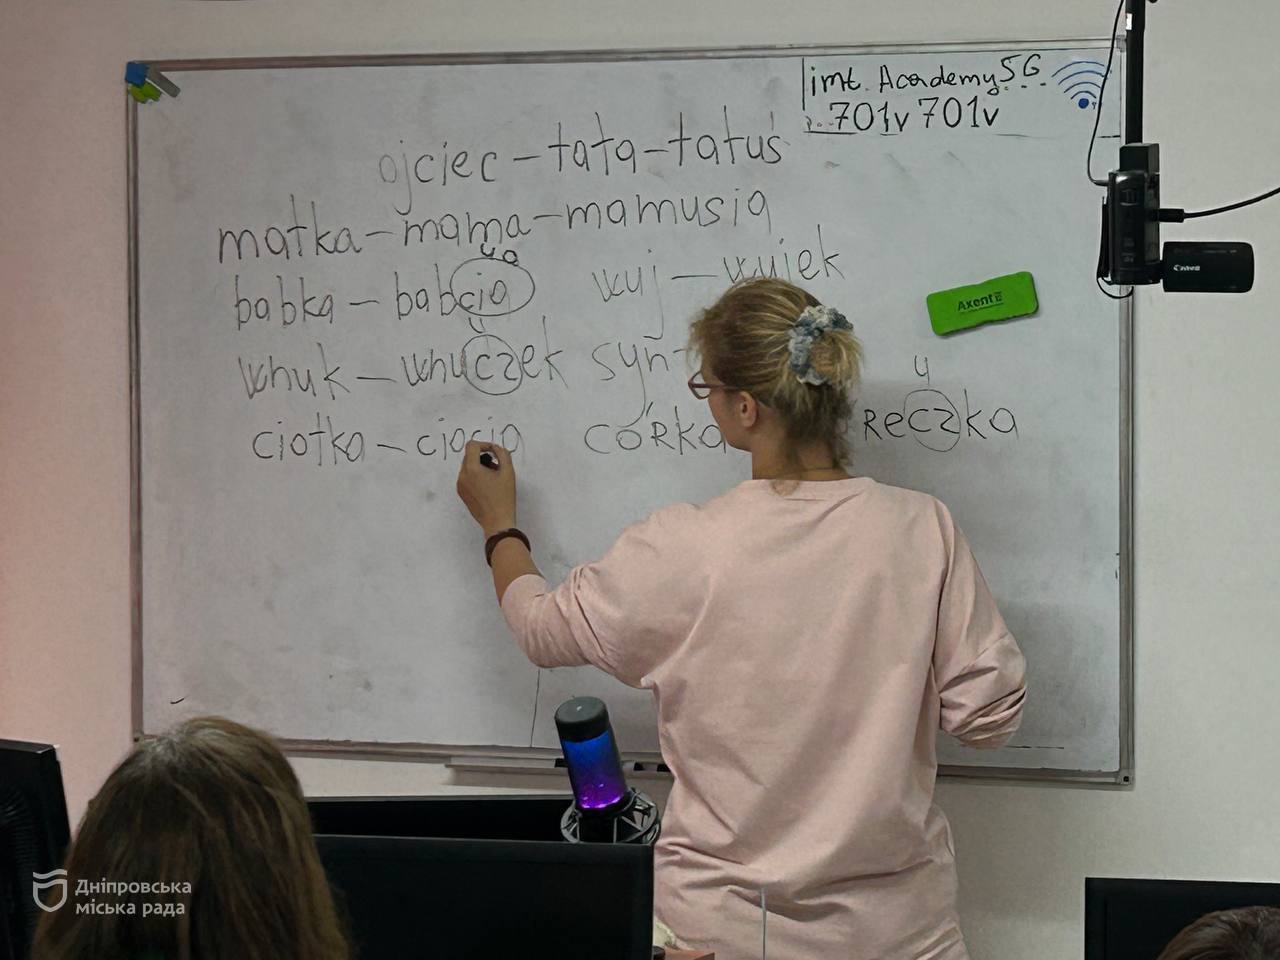 imt. Academy 5G
P... 701v701v
ojciec – tata – tatuś
matka – mama – mamusia
ча
babka – babcia
wuj – wujek
ч
wnuk – wnuczek
syn –
ciotka – ciocia
córka
ч
reczka
Axent
Canon
Дніпровська
міська рада